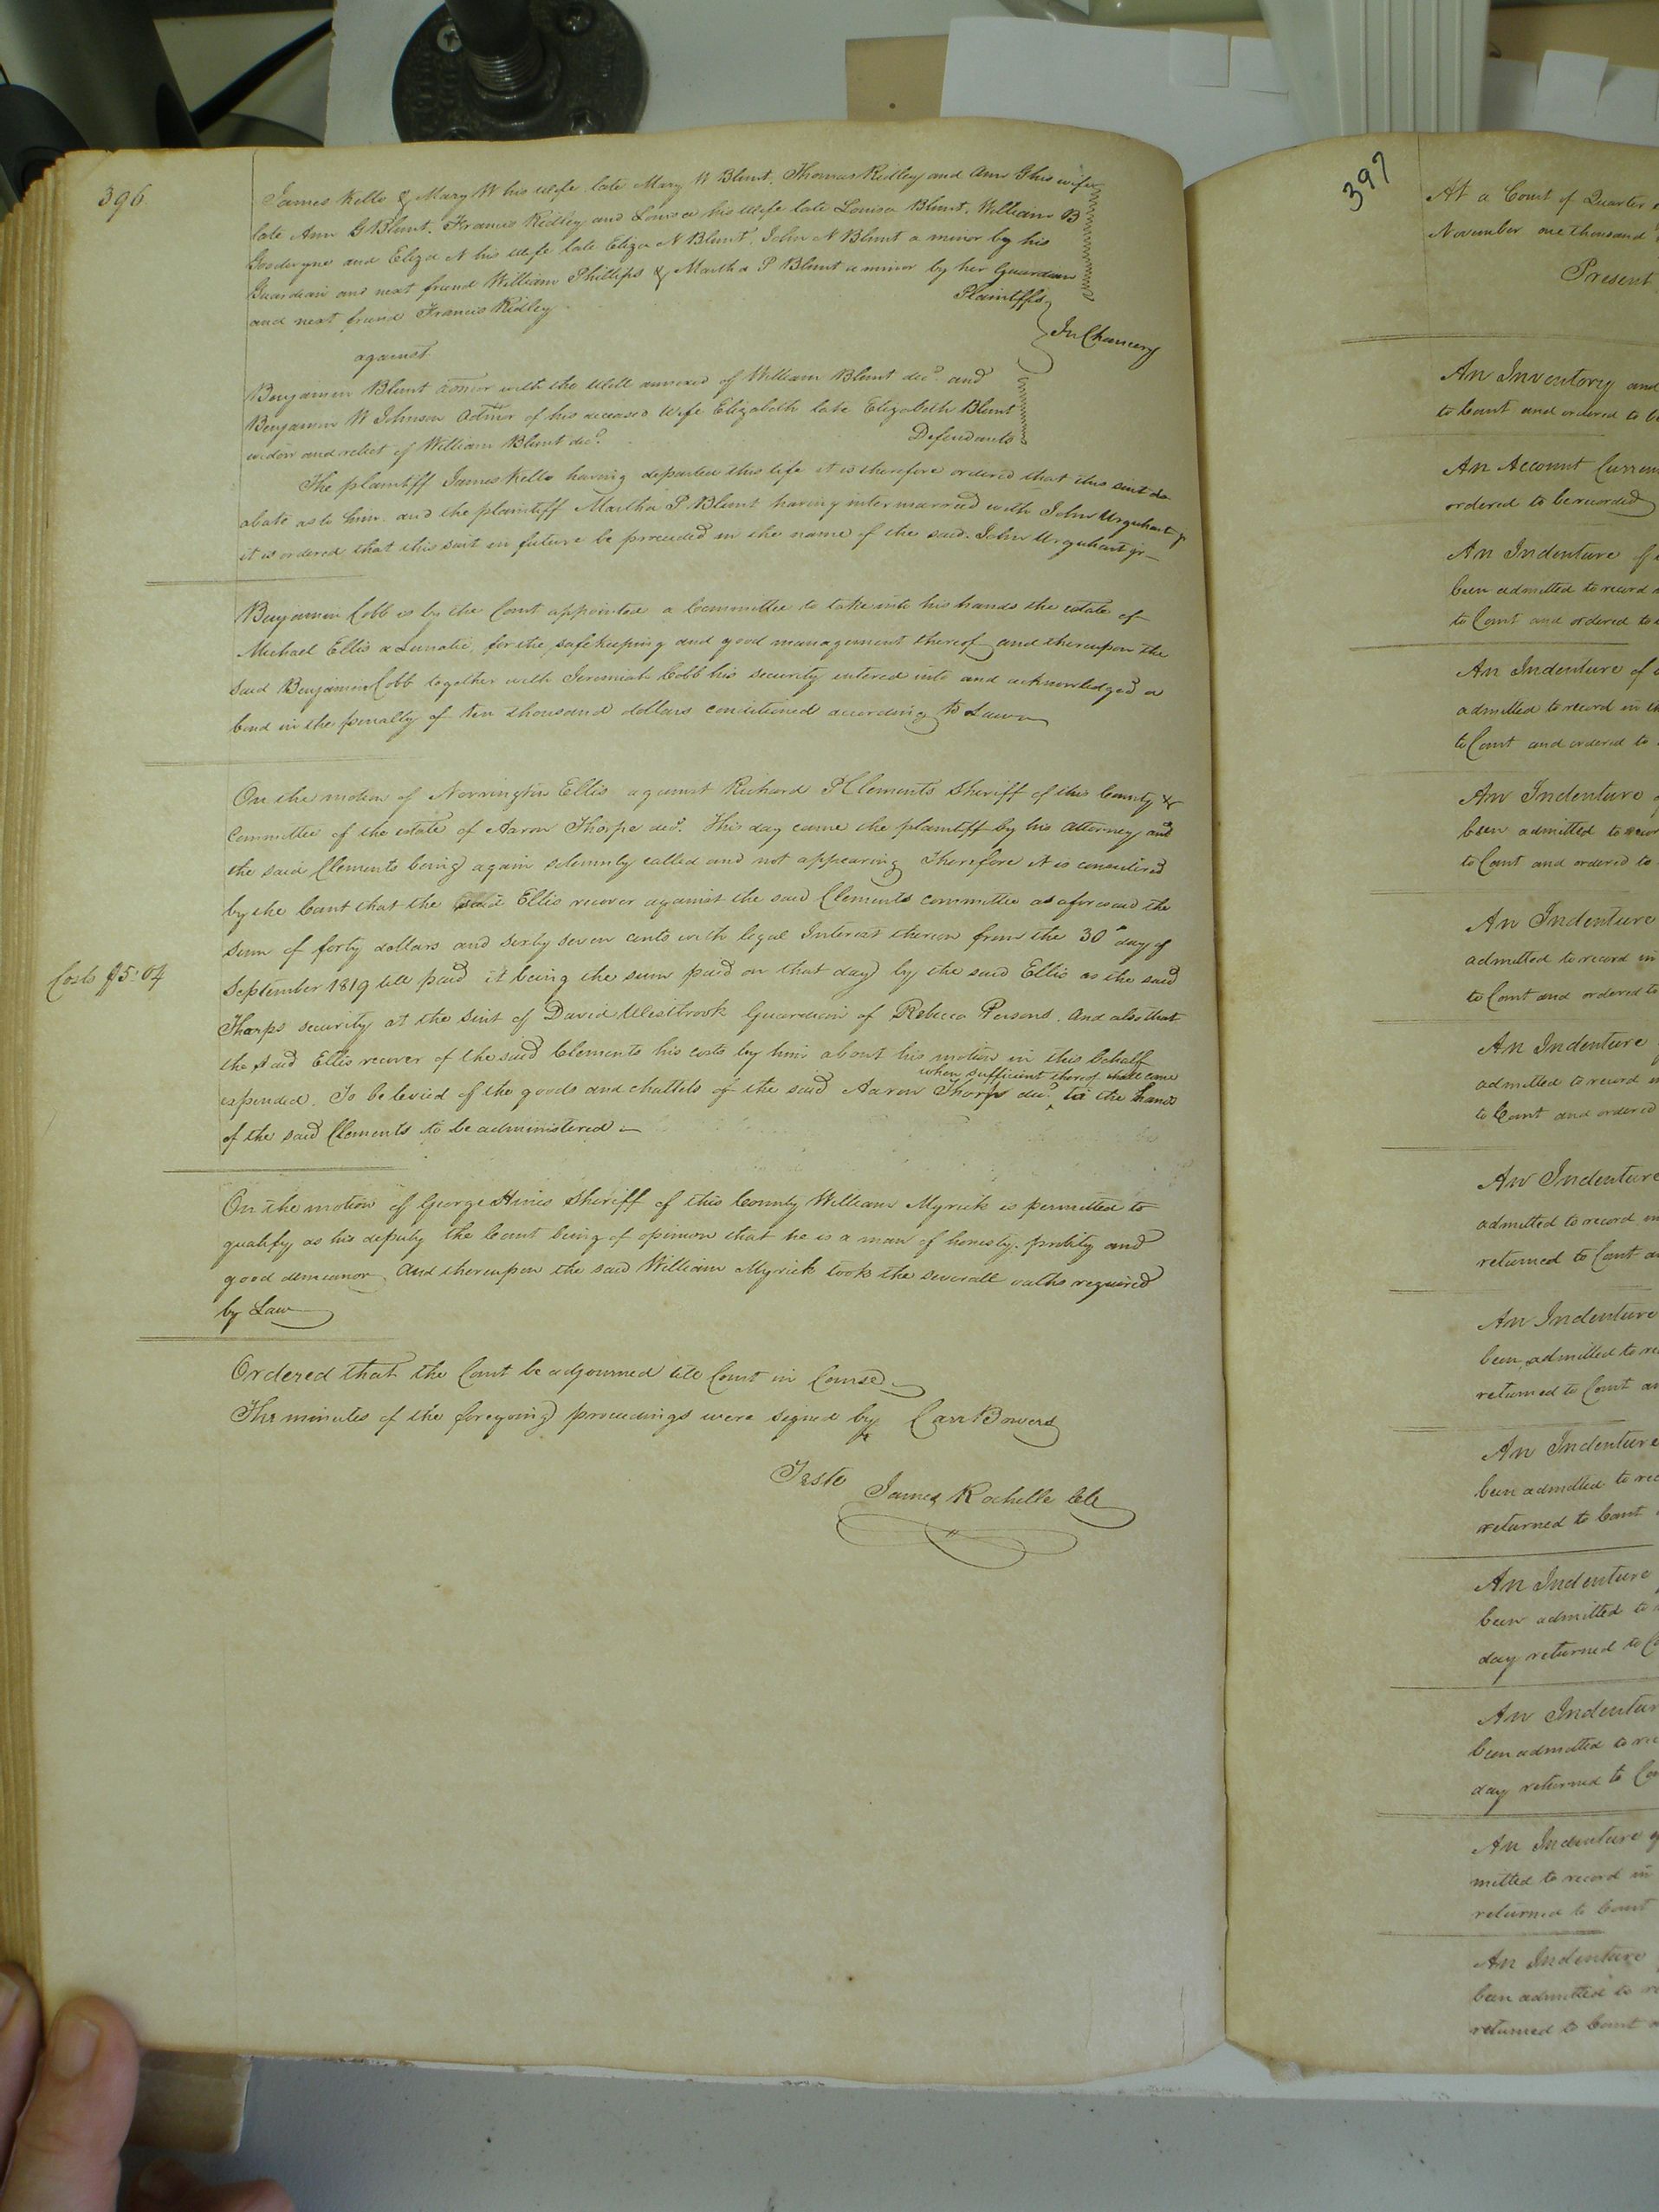 396
James Kello & Mary W his wife late Mary W Blunt, Thomas Ridley and Ann G his wife
late Ann G Blunt, Francis Ridley and Louisa his wife late Louisa Blunt, William B
Goodwyne and Eliza N his wife late Eliza N Blunt, John N Blunt a minor by his
Guardian and next friend William Phillips & Martha P Blunt a minor by her Guardian
and next friend Francis Ridley
Plaintiffs
In Chancery
against
Benjamin Blunt admor with the Will annexed of William Blunt decd. and
Benjamin W Johnson Admor of his deceased wife Elizabeth late Elizabeth Blunt
widow and relict of William Blunt decd.
Defendants
The plaintiff James Kello having departed this life it is therefore ordered that this suit do
abate as to him. and the plaintiff Martha P Blunt having intermarried with John Urquhart jr
it is ordered that this suit in future be proceeded in the name of the said John Urquhart jr
Benjamin Cobb is by the Court appointed a Committee to take into his hands the estate of
Michael Ellis a Lunatic, for the safekeeping and good management thereof and thereupon the
said Benjamin Cobb together with Jeremiah Cobb his security entered into and acknowledged a
bond in the penalty of ten thousand dollars conditioned according to Law
On the motion of Norrington Ellis against Richard P Clements Sheriff of this County &
Committee of the estate of Aaron Thorpe decd. This day came the plaintiff by his attorney and
the said Clements being again solemnly called and not appearing Therefore it is considered
by the Court that the said Ellis recover against the said Clements committee as aforesaid the
sum of forty dollars and sixty seven cents with legal Interest thereon from the 30th day of
Costs $5:04
September 1819 till paid it being the sum paid on that day by the said Ellis as the said
Thorps security at the suit of David Westbrook Guardian of Rebecca Persons. And also that
the said Ellis recover of the said Clements his costs by him about his motion in this behalf
when sufficient thereof shall come
expended. To be levied of the goods and chattels of the said Aaron Thorp decd. to the hands
of the said Clements to be administered
On the motion of George Hines Sheriff of this County William Myrick is permitted to
qualify as his deputy the Court being of opinion that he is a man of honesty, probity and
good demeanor and thereupon the said William Myrick took the severall oaths required
by Law
Ordered that the Court be adjourned till Court in Course
The minutes of the foregoing proceedings were signed by Carr Bowers
Teste
James Rochelle Clk
397
At a Court of Quarter
November one thousand
Present
An Inventory and
to Court and ordered to
An Account Current
ordered to be recorded
An Indenture of
been admitted to record
to Court and ordered to
An Indenture of
admitted to record in
to Court and ordered to
An Indenture
been admitted to
to Court and ordered to
An Indenture
admitted to record in
to Court and ordered to
An Indenture
admitted to record
to Court and ordered
An Indenture
admitted to record
returned to Court
An Indenture
been admitted to
returned to Court
An Indenture
been admitted to
returned to Court
An Indenture
been admitted to
day returned to
An Indenture
been admitted to
day returned to
An Indenture
mitted to record in
returned to Court
An Indenture
been admitted to
returned to Court